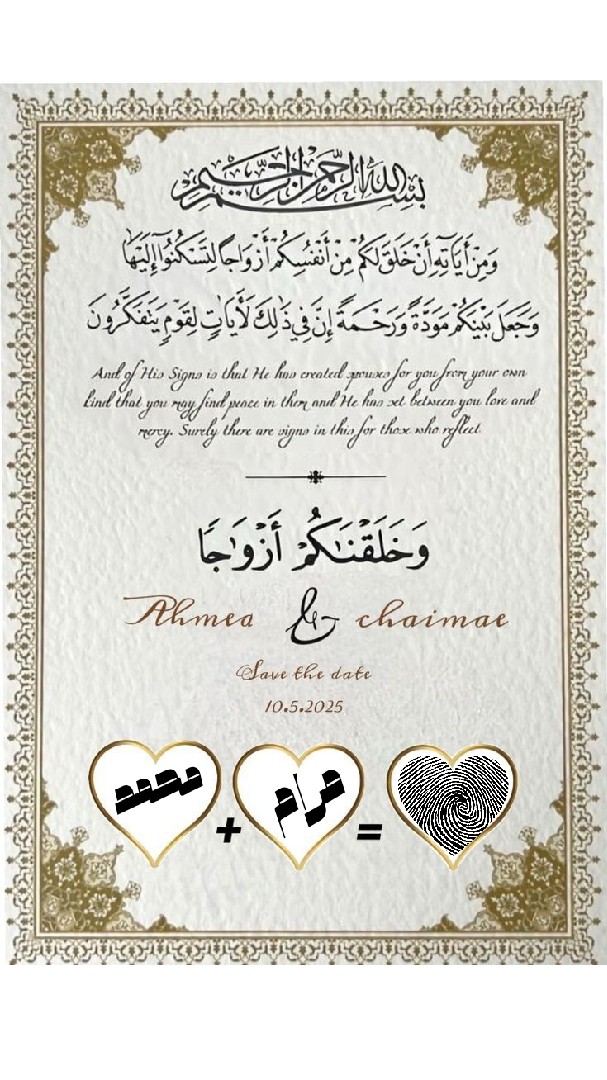 بسم الله الرحمن الرحيم
وَمِنْ أَيَاتِهِ أَنْ خَلَقَ لَكُمْ مِنْ أَنْفُسِكُمْ أَزْوَاجًا لِتَسْكُنُوا إِلَيْهَا
وَجَعَلَ بَيْنَكُمْ مَوَدَّةً وَرَحْمَةً إِنَّ فِي ذَٰلِكَ لَأَيَاتٍ لِقَوْمٍ يَتَفَكَّرُونَ
And of His Signs is that He has created spouses for you from your own
kind that you may find peace in them and He has set between you love and
mercy. Surely there are signs in this for those who reflect.
وَخَلَقْنَاكُمْ أَزْوَاجًا
Ahmed & chaimae
Save the date
10.5.2025
محمد + مرام =